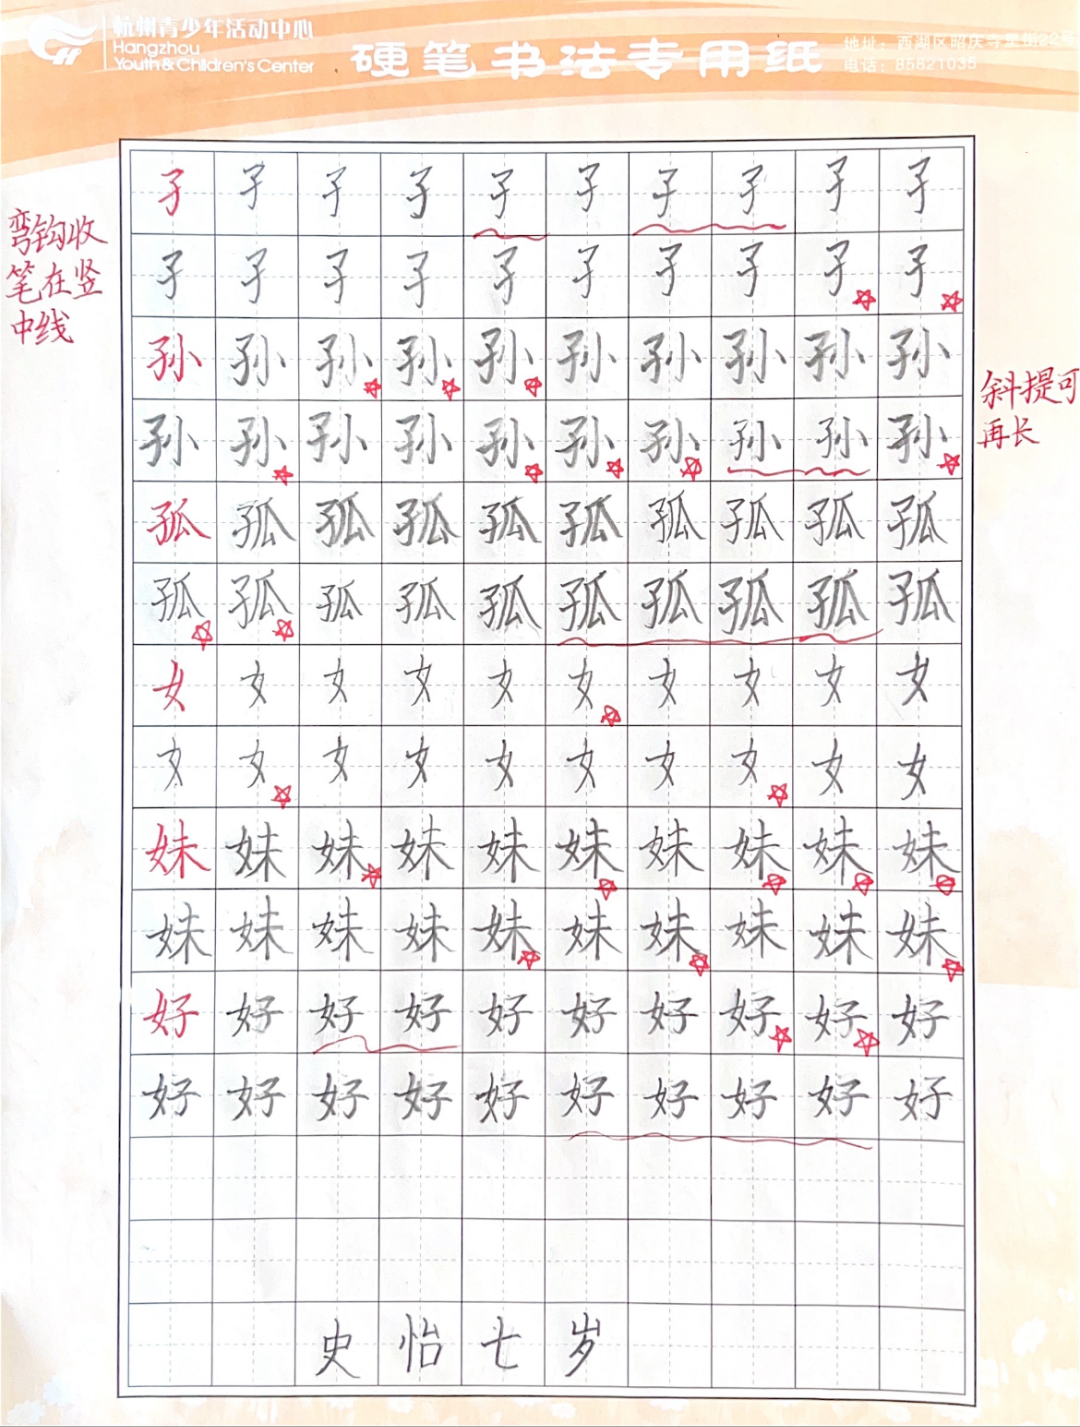 杭州青少年活动中心
Hangzhou
Youth & Children's Center
硬笔书法专用纸
地址：西湖区昭庆寺里街22号
电话：85821035
孑孑孑孑孑孑孑孑孑孑
孑孑孑孑孑孑孑孑孑孑
弯钩收
笔在竖
中线
孙孙孙孙孙孙孙孙孙孙
孙孙孙孙孙孙孙孙孙孙
斜提可
再长
孤孤孤孤孤孤孤孤孤孤
孤孤孤孤孤孤孤孤孤孤
女女女女女女女女女女
女女女女女女女女女女
妹妹妹妹妹妹妹妹妹妹
妹妹妹妹妹妹妹妹妹妹
好好好好好好好好好好
好好好好好好好好好好
史怡七岁